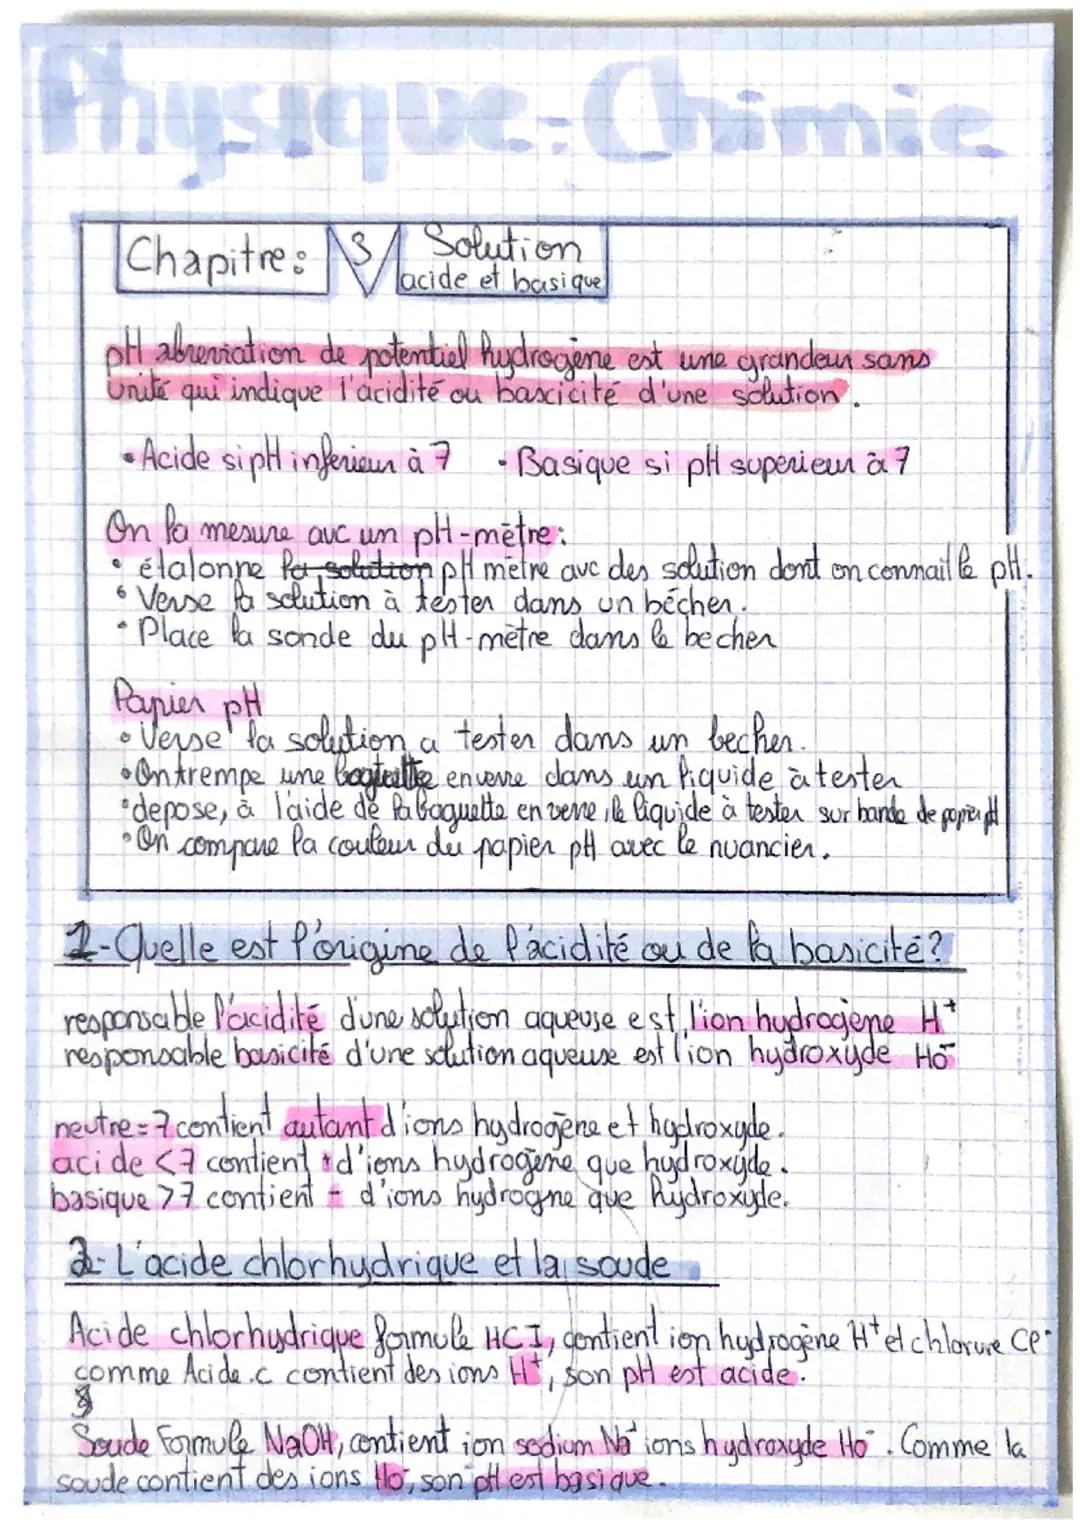 Physique-Chimie
Chapitre: 3 Solution
acide et basique
pH abreviation de potentiel hydrogène est une grandeur sans
unité qui indique l'acidité ou bascicité d'une solution.
• Acide si pH inferieur à 7 • Basique si pH superieur à 7
On la mesure avc un pH-mètre:
• étalonne la solution pH mètre avc des solution dont on connait le pH.
• Verse la solution à tester dans un bécher.
• Place la sonde du pH-mètre dans le becher
Papier pH
• Verse la solution a tester dans un becher.
• On trempe une baguette en verre dans un liquide à tester
• depose, à l'aide de la baguette en verre, le liquide à tester sur bande de papier pH
• On compare la couleur du papier pH avec le nuancier.
1-Quelle est l'origine de l'acidité ou de la basicité?
responsable l'acidité d'une solution aqueuse est l'ion hydrogène H+
responsable basicité d'une solution aqueuse est l'ion hydroxyde HO-
neutre=7 contient autant d'ions hydrogène et hydroxyde.
acide <7 contient + d'ions hydrogène que hydroxyde.
basique >7 contient - d'ions hydrogne que hydroxyde.
2- L'acide chlorhydrique et la soude
Acide chlorhydrique formule HCI, contient ion hydrogène H+ et chlorure Cl-
comme Acide.c contient des ions H+, son pH est acide.
Soude Formule NaOH, contient ion sodium Na+ ions hydroxyde HO-. Comme la
soude contient des ions HO-, son pH est basique.